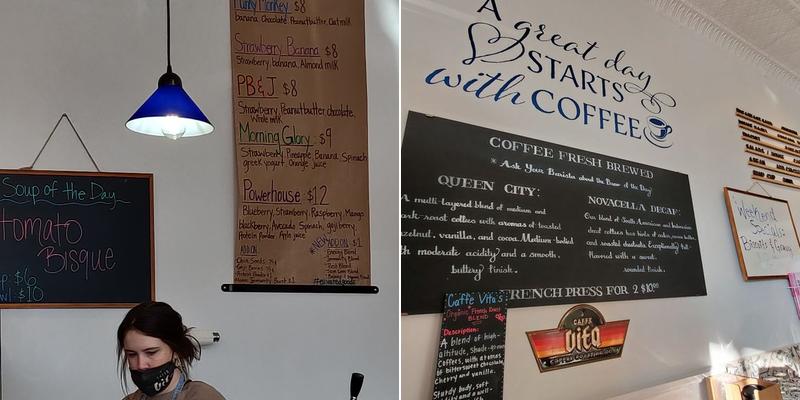 Funky Monkey $8
banana, Chocolate, Peanutbutter, Oatmilk
Strawberry Banana $8
Strawberry, banana, Almond milk
PB&J $8
Strawberry, Peanutbutter chocolate,
Whole milk
Morning Glory $9
Strawberry, Pineapple, Banana, Spinach
greek yogurt, Orange juice
Powerhouse $12
Blueberry, Strawberry, Raspberry, Mango
blackberry, Avocado, Spinach, goji berry,
Protein Powder, Apple juice
ADD ON
Chia Seeds
Goji Berries
Protein Powder
*NEW ADD ON $1
Energy Blend
Immunity Blend
Soup of the Day
Tomato
Bisque
$6
$10
VITA
A great day
STARTS
with COFFEE
COFFEE FRESH BREWED
* Ask Your Barista about the Brew of the Day!
QUEEN CITY:
A multi-layered blend of medium and
dark-roast coffees with aromas of toasted
hazelnut, vanilla, and cocoa. Medium-bodied
with moderate acidity and a smooth,
buttery finish.
NOVACELLA DECAF:
Our blend of South American and Indonesian
and roasted chestnuts. Exceptionally full-
flavored with a sweet,
rounded finish.
FRENCH PRESS FOR 2 $10.00
Caffé Vita's
Organic French Roast
BLEND
Description:
A blend of high-
altitude, shade-grown
Coffees, with aromas
of bittersweet chocolate,
Cherry and vanilla.
Sturdy body, soft
CAFFE
VITA
COFFEE ROASTING CO.
Weekend
Specials:
Biscuits & Gravy